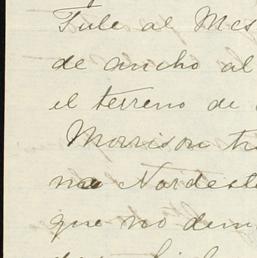 Tule al Mes
de ancho al
el terreno de
Morrison tr
na Nordeste
que no dem